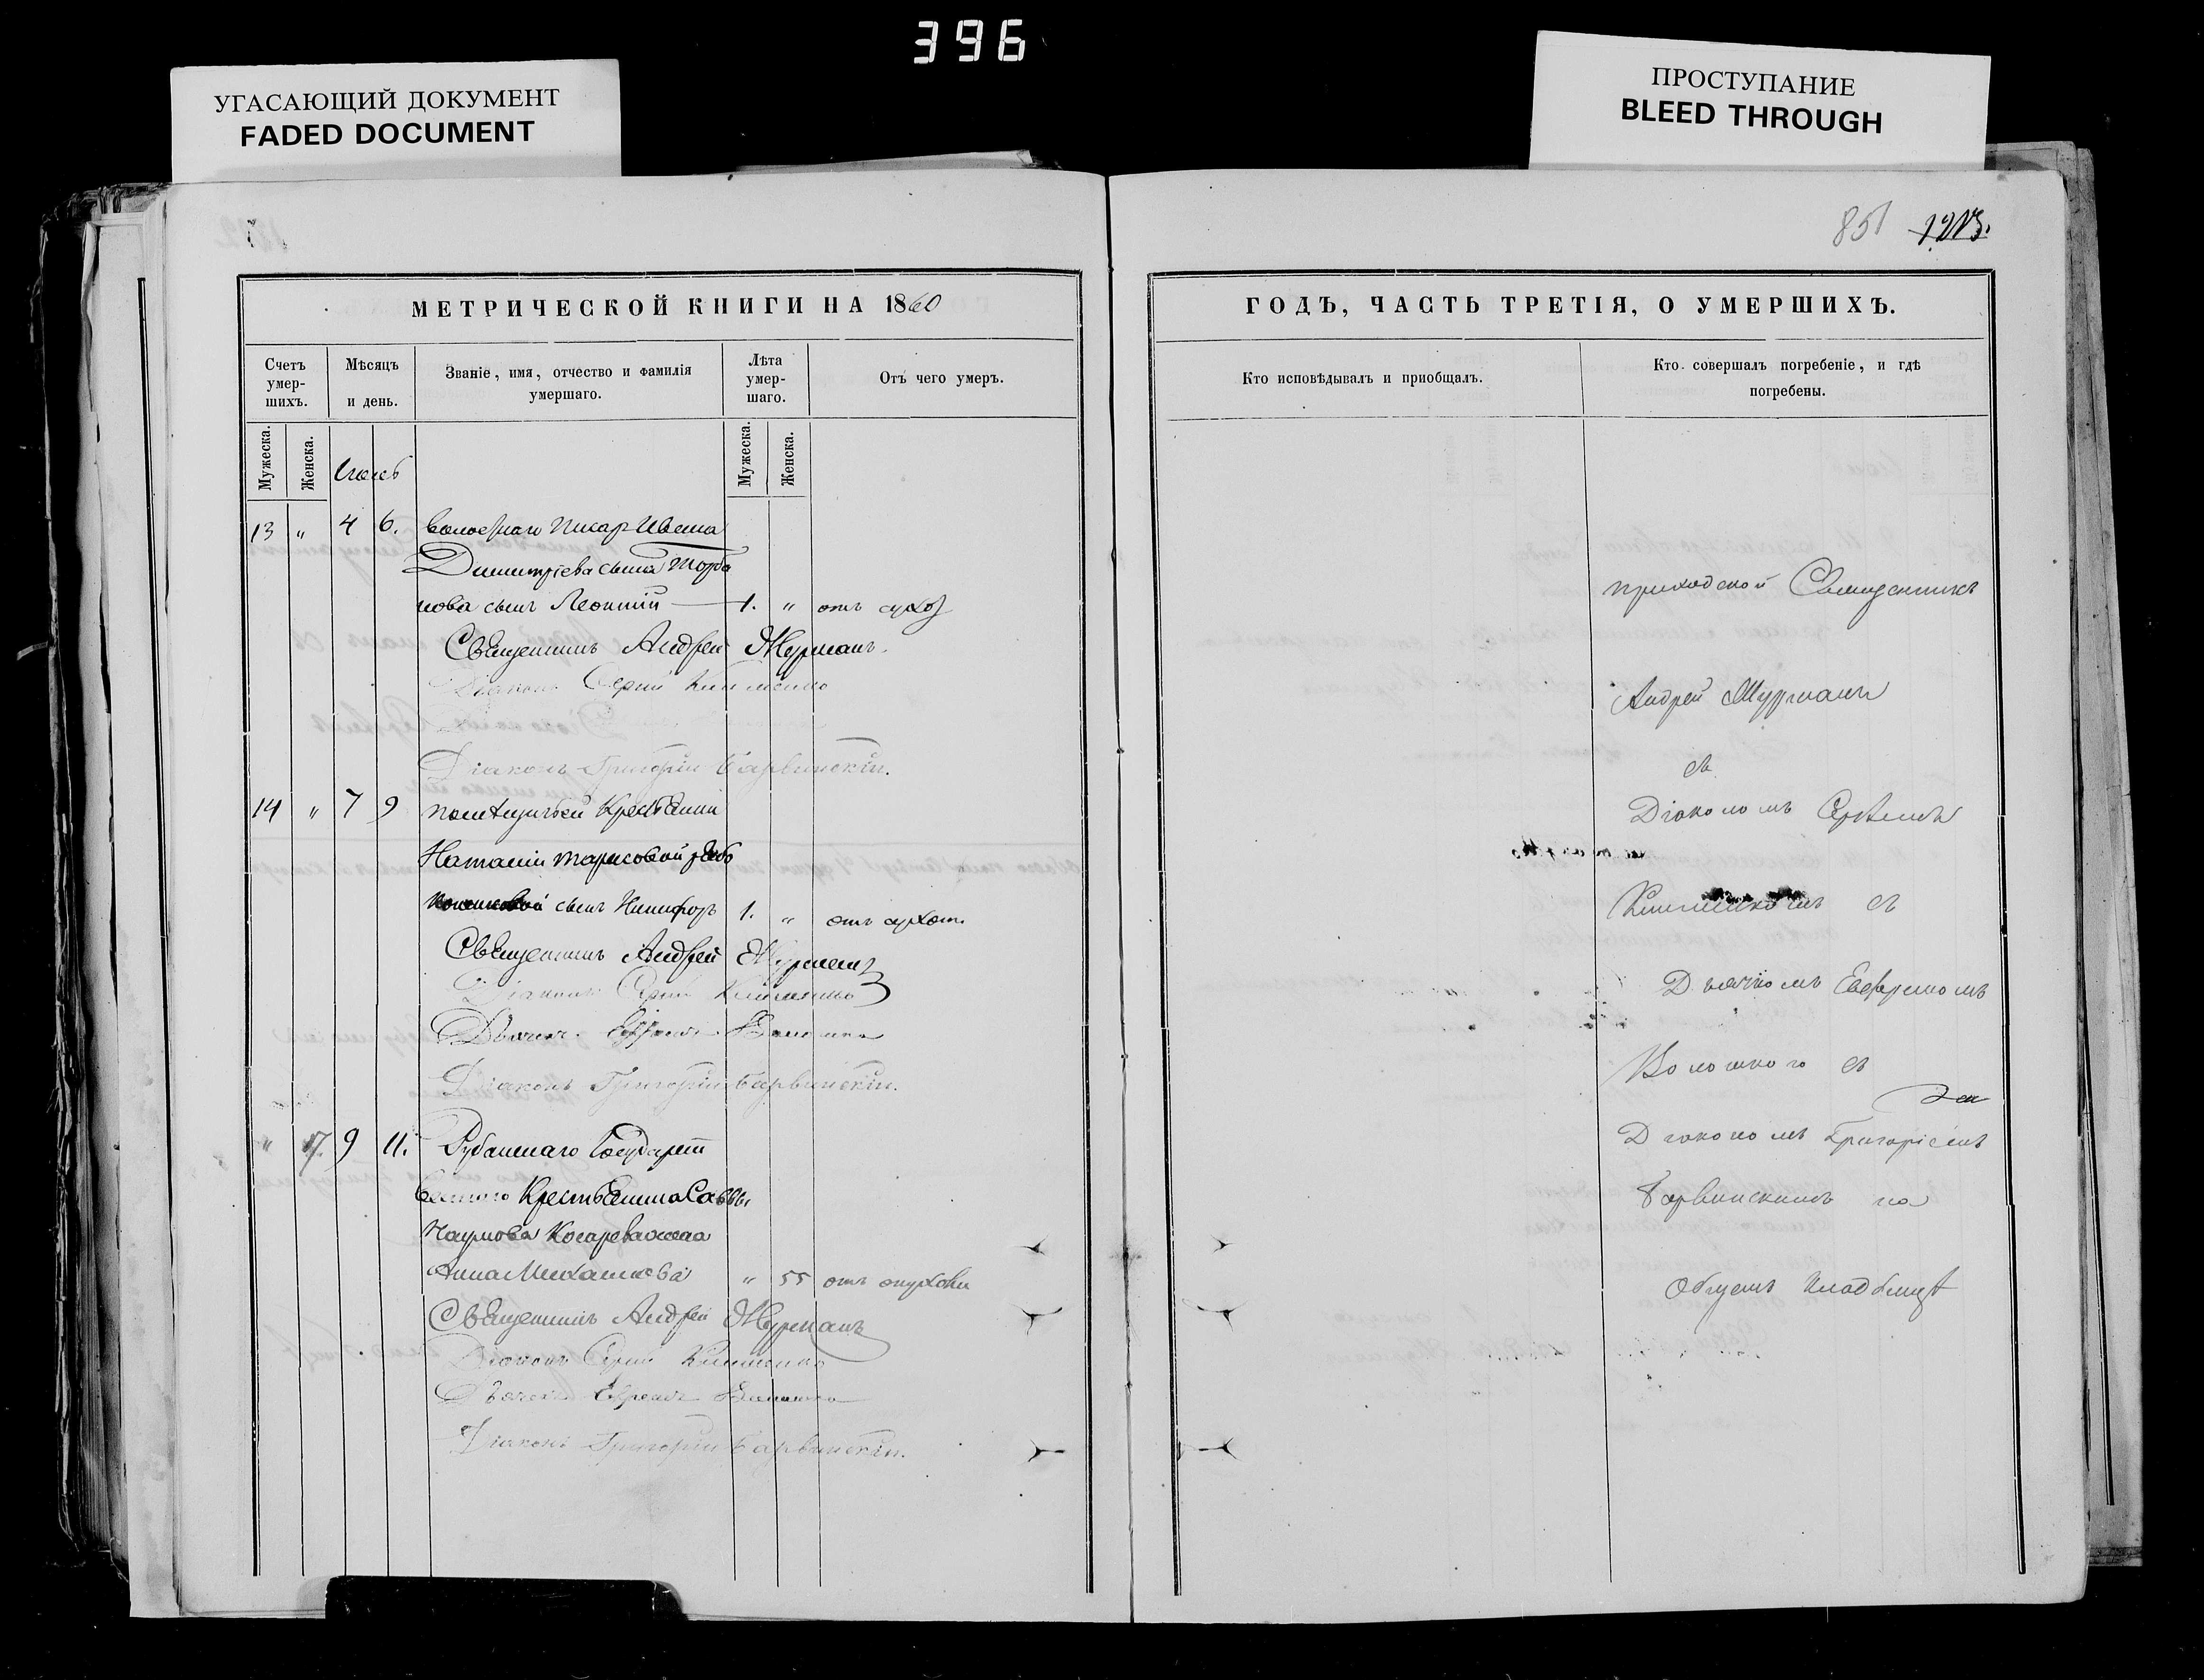 396
УГАСАЮЩИЙ ДОКУМЕНТ
FADED DOCUMENT
ПРОСТУПАНИЕ
BLEED THROUGH
851 1213.
МЕТРИЧЕСКОЙ КНИГИ НА 1860
ГОДЪ, ЧАСТЬ ТРЕТІЯ, О УМЕРШИХЪ.
Счетъ умер-шихъ.
Мѣсяцъ и день.
Званіе, имя, отчество и фамилія умершаго.
Лѣта умер-шаго.
Отъ чего умеръ.
Кто исповѣдывалъ и пріобщалъ.
Кто совершалъ погребеніе, и гдѣ погребены.
Мужеска.
Женска.
Мужеска.
Женска.
13 " 4 6. Волостнаго Писар Ивана
Димитріева сына Торба
нова сынъ Леонтій 1. " отъ сухо
Священникъ Андрей Журманъ.
Діаконъ Сергій Клименко
Діаконъ Григорій Барвинскій.
14 " 7 9 помѣщичьей Крестьянки
Наталіи Тарасовой
сынъ Никифоръ 1. " отъ сухот.
Священникъ Андрей Журманъ
Діаконъ Сергій Клименко
Дьячекъ Ефремъ Волошко
Діаконъ Григорій Барвинскій.
" 17. 9 11. Государст
веннаго Крестьянина Саввы
Наумова Косарева жена
Анна Михайлова " 55 отъ опухоли
Священникъ Андрей Журманъ
Діаконъ Сергій Клименко
Дьячекъ Ефремъ Волошко
Діаконъ Григорій Барвинскій.
приходской Священникъ
Андрей Журманъ
съ
Діакономъ Сергіемъ
Клименкомъ съ
Дьячкомъ Евфремомъ
Волошкого съ
Діакономъ Григоріемъ
Барвинскимъ на
Общемъ кладбищѣ